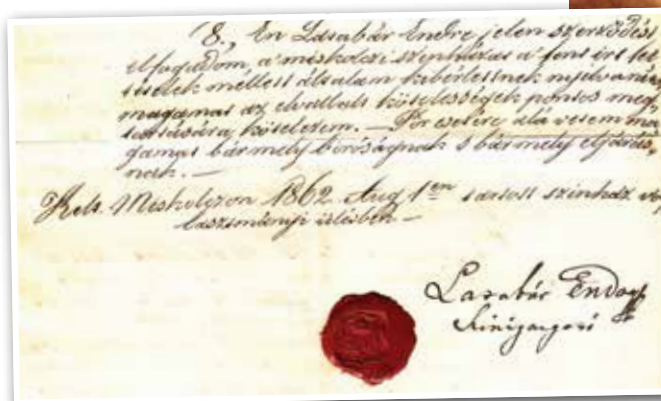 8., Én Latabár Endre jelen szerződést
elfogadom, a miskolczi szinházat a fent irt fel
tételek mellett általam kibérlettnek nyilvánitva,
magamat az elvállalt kötelességek pontos meg
tartására kötelezem. — Pör esetére alá vetem ma
gamat bármely biróságnak s bármely eljárás
nak. —
Kelt Miskolczon 1862 Aug 1én tartott szinház vá
lasztmányi ülésben —
Latabár Endre
Szinigazgató